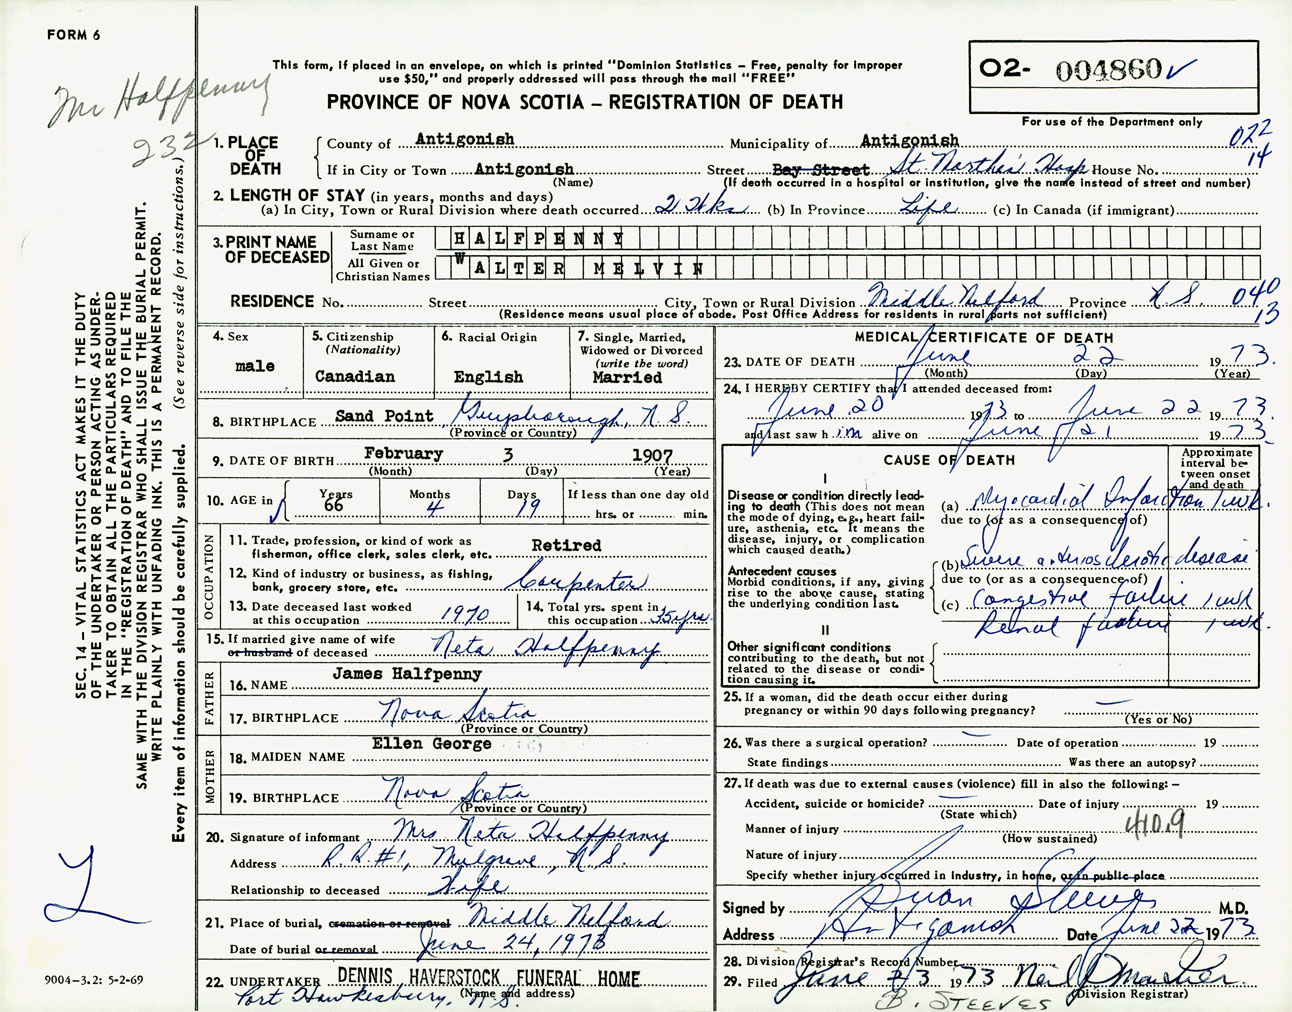 FORM 6
Mr Halfpenny
232
This form, if placed in an envelope, on which is printed "Dominion Statistics – Free, penalty for improper
use $50," and properly addressed will pass through the mail "FREE"
PROVINCE OF NOVA SCOTIA – REGISTRATION OF DEATH
02- 004860 ✓
For use of the Department only
022
14
1. PLACE OF DEATH
County of Antigonish Municipality of Antigonish
If in City or Town Antigonish Street Bay Street St. Martha's Hosp House No.
(Name) (If death occurred in a hospital or institution, give the name instead of street and number)
2. LENGTH OF STAY (in years, months and days)
(a) In City, Town or Rural Division where death occurred 2 Wks (b) In Province Life (c) In Canada (if immigrant)
3. PRINT NAME OF DECEASED
Surname or Last Name HALFPENNY
All Given or Christian Names WALTER MELVIN
RESIDENCE No. Street City, Town or Rural Division Middle Melford Province N.S. 040
13
(Residence means usual place of abode. Post Office Address for residents in rural parts not sufficient)
4. Sex
male
5. Citizenship
(Nationality)
Canadian
6. Racial Origin
English
7. Single, Married,
Widowed or Divorced
(write the word)
Married
8. BIRTHPLACE Sand Point Guysborough, N.S.
(Province or Country)
9. DATE OF BIRTH February 3 1907
(Month) (Day) (Year)
10. AGE in Years 66 Months 4 Days 19 If less than one day old
hrs. or min.
OCCUPATION
11. Trade, profession, or kind of work as
fisherman, office clerk, sales clerk, etc. Retired
12. Kind of industry or business, as fishing,
bank, grocery store, etc. Carpenter
13. Date deceased last worked
at this occupation 1970
14. Total yrs. spent in
this occupation 35 yrs.
15. If married give name of wife
or husband of deceased Neta Halfpenny
FATHER
16. NAME James Halfpenny
17. BIRTHPLACE Nova Scotia
(Province or Country)
MOTHER
18. MAIDEN NAME Ellen George
19. BIRTHPLACE Nova Scotia
(Province or Country)
20. Signature of informant Mrs Neta Halfpenny
Address R.R.#1, Mulgrave, N.S.
Relationship to deceased Wife
21. Place of burial, cremation or removal Middle Melford
Date of burial or removal June 24, 1973
22. UNDERTAKER DENNIS HAVERSTOCK FUNERAL HOME
Port Hawkesbury, N.S.
(Name and address)
MEDICAL CERTIFICATE OF DEATH
23. DATE OF DEATH June 22 1973.
(Month) (Day) (Year)
24. I HEREBY CERTIFY that I attended deceased from:
June 20 1973 to June 22 1973.
and last saw him alive on June 21 1973
CAUSE OF DEATH
Approximate
interval be-
tween onset
and death
I
Disease or condition directly lead-
ing to death (This does not mean
the mode of dying, e.g., heart fail-
ure, asthenia, etc. It means the
disease, injury, or complication
which caused death.)
(a) Myocardial Infarction 1 wk.
due to (or as a consequence of)
(b) Severe arteriosclerotic disease
Antecedent causes
Morbid conditions, if any, giving
rise to the above cause, stating
the underlying condition last.
due to (or as a consequence of)
(c) Congestive failure 1 wk
Renal failure 1 wk.
II
Other significant conditions
contributing to the death, but not
related to the disease or condi-
tion causing it.
25. If a woman, did the death occur either during
pregnancy or within 90 days following pregnancy? —
(Yes or No)
26. Was there a surgical operation? — Date of operation 19
State findings Was there an autopsy?
27. If death was due to external causes (violence) fill in also the following:–
Accident, suicide or homicide? — Date of injury 19
(State which)
Manner of injury 410.9
(How sustained)
Nature of injury
Specify whether injury occurred in Industry, in home, or in public place
Signed by Brian Steeves M.D.
Address Antigonish Date June 22 1973
28. Division Registrar's Record Number
29. Filed June 23 1973 Neil
(Division Registrar)
B. STEEVES
SEC. 14 – VITAL STATISTICS ACT MAKES IT THE DUTY
OF THE UNDERTAKER OR PERSON ACTING AS UNDER-
TAKER TO OBTAIN ALL THE PARTICULARS REQUIRED
IN THE "REGISTRATION OF DEATH" AND TO FILE THE
SAME WITH THE DIVISION REGISTRAR WHO SHALL ISSUE THE BURIAL PERMIT.
WRITE PLAINLY WITH UNFADING INK. THIS IS A PERMANENT RECORD.
Every item of information should be carefully supplied. (See reverse side for instructions.)
9004-3.2: 5-2-69